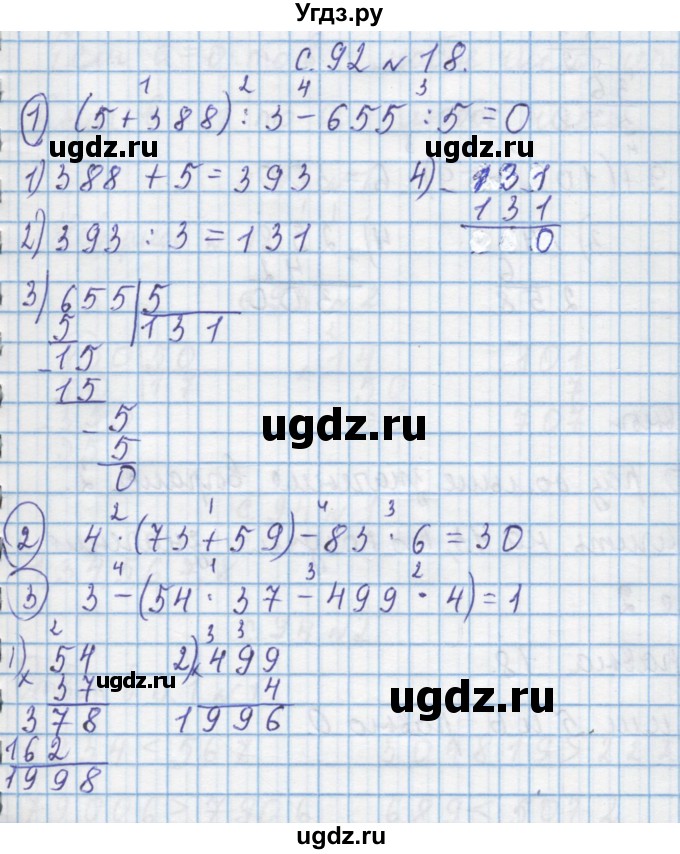 Угдз.ру
с. 92 № 18.
1 2 4 3
1) (5+388):3-655:5=0
1) 388+5=393
2) 393:3=131
3) 655 | 5
5 | 131
-15
15
-5
5
0
4) -131
131
0
2 1 4 3
2) 4·(73+59)-83·6=30
4 1 3 2
3) 3-(54·37-499·4)=1
1) 2
× 54
37
378
162
1998
2) 3 3
× 499
4
1996
ugdz.ru
ugdz.ru
ugdz.ru
ugdz.ru
ugdz.ru
ugdz.ru
ugdz.ru